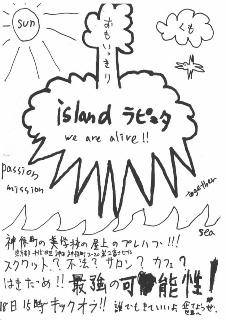 sun
おもいっきり
くも
island ラピュタ
we are alive!!
passion
mission
together
sea
神保町の美学校の屋上のプレハブ!!!
スクワット? 不法? サロン? カフェ?
はきだめ!! 最強の可能性!
18日 15時 キックオフ!! 誰でもきていいよ